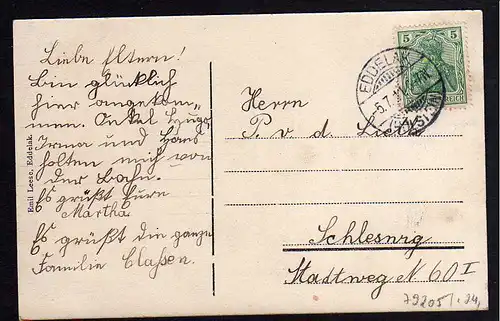 Liebe Eltern!
Bin glücklich
hier angekom-
men. Onkel Hugo,
Irma und Hans
holten mich von
der Bahn.
Es grüßt Eure
Martha
Es grüßt die ganze
Familie Claßen.
Emil Leese, Eddelak.
5 5
REICH
EDDELAK
5.7.1
(HOLSTEIN)
Herrn
P. v. d.
Schleswig
Stadtweg N 60 I
79205/.24,